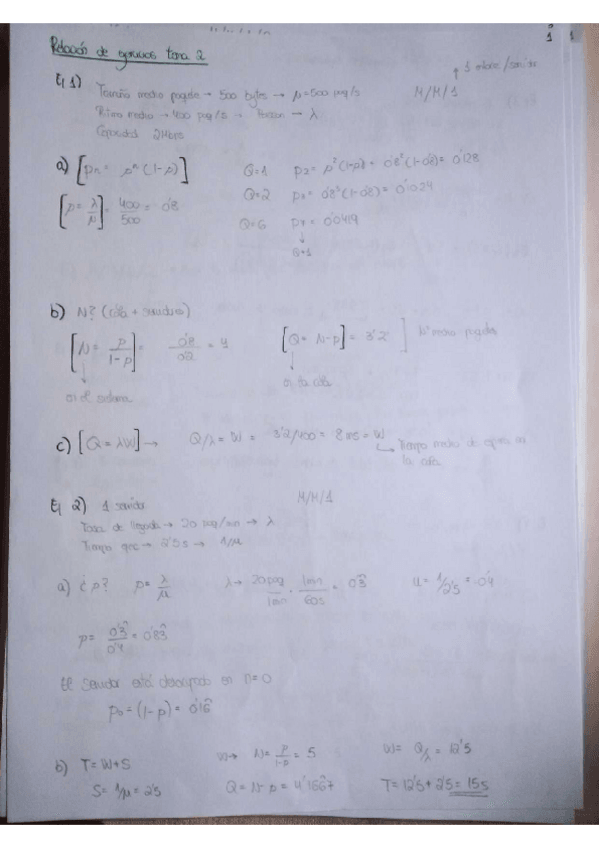 1
Relación de ejercicios tema 2
Ej 1) Tamaño medio paquete → 500 bytes → μ=500 paq/s M/M/1
Ritmo medio → 400 paq/s → Poisson → λ
Capacidad 2Mbps
a) [pn = ρⁿ(1-ρ)] Q=1 p2 = ρ²(1-ρ) = 0'8²(1-0'8) = 0'128
[ρ = λ/μ] = 400/500 = 0'8 Q=2 p3 = 0'8³(1-0'8) = 0'1024
Q=6 p7 = 0'0419
↓
Q+1
b) N? (cola + servidor)
[N = ρ/1-ρ] = 0'8/0'2 = 4 [Q = N-ρ] = 3'2 ] Nº medio paquetes
↓ ↓
en el sistema en la cola
c) [Q = λW] → Q/λ = W = 3'2/400 = 8 ms = W
↳ Tiempo medio de espera en
la cola
Ej 2) 1 servidor M/M/1
Tasa de llegada → 20 paq/min → λ
Tiempo → 2'5s → 1/μ
a) ¿ρ? ρ = λ/μ λ → 20 paq/1min · 1min/60s = 0'3̂ μ = 1/2'5 = 0'4
ρ = 0'3̂/0'4 = 0'83̂
El servidor está desocupado en n=0
p0 = (1-ρ) = 0'16̂
b) T = W+S W→ N = ρ/1-ρ = 5 W = Q/λ = 12'5
S = 1/μ = 2'5 Q = N-ρ = 4'1667 T = 12'5 + 2'5 = 15s